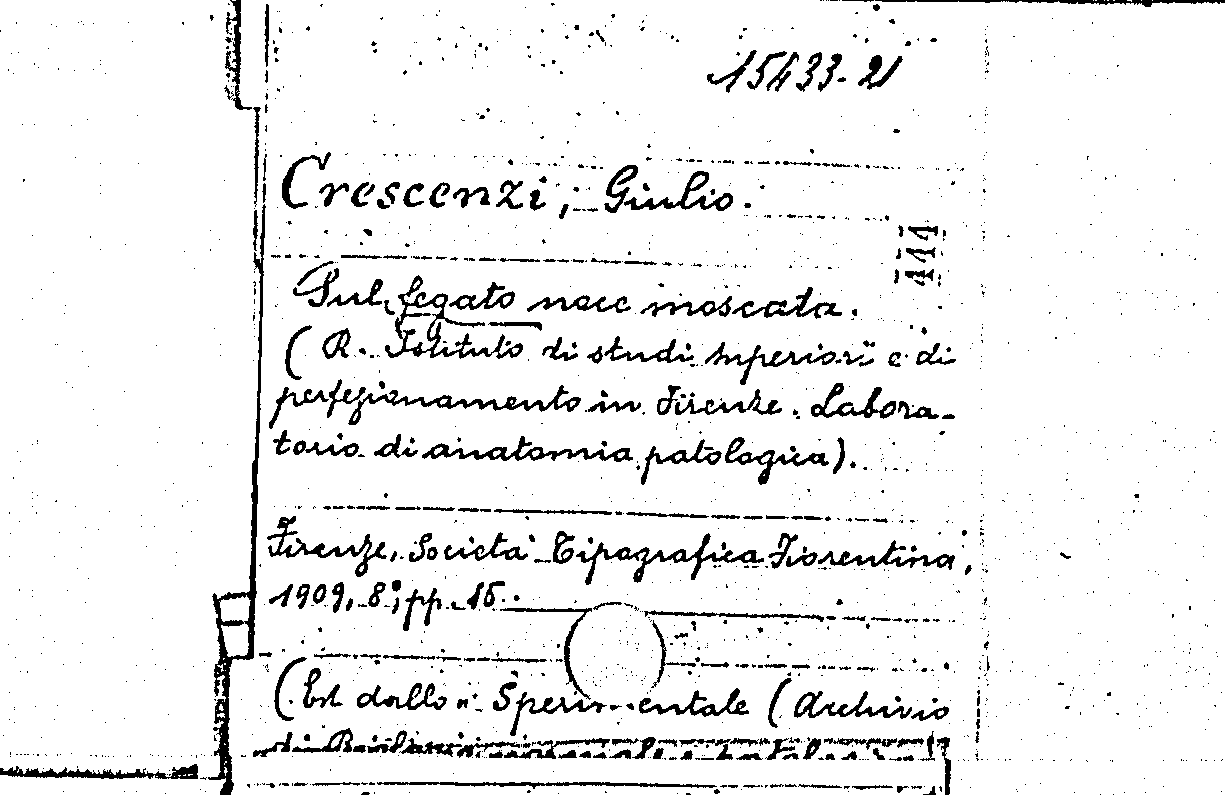 15433-21
Crescenzi, Giulio.
444
Sul fegato noce moscata.
(R. Istituto di studi superiori e di
perfezionamento in Firenze. Labora-
torio di anatomia patologica).
Firenze, Società Tipografica Fiorentina,
1909, 8°, pp. 15.
(Est. dallo "Sperimentale (Archivio
di